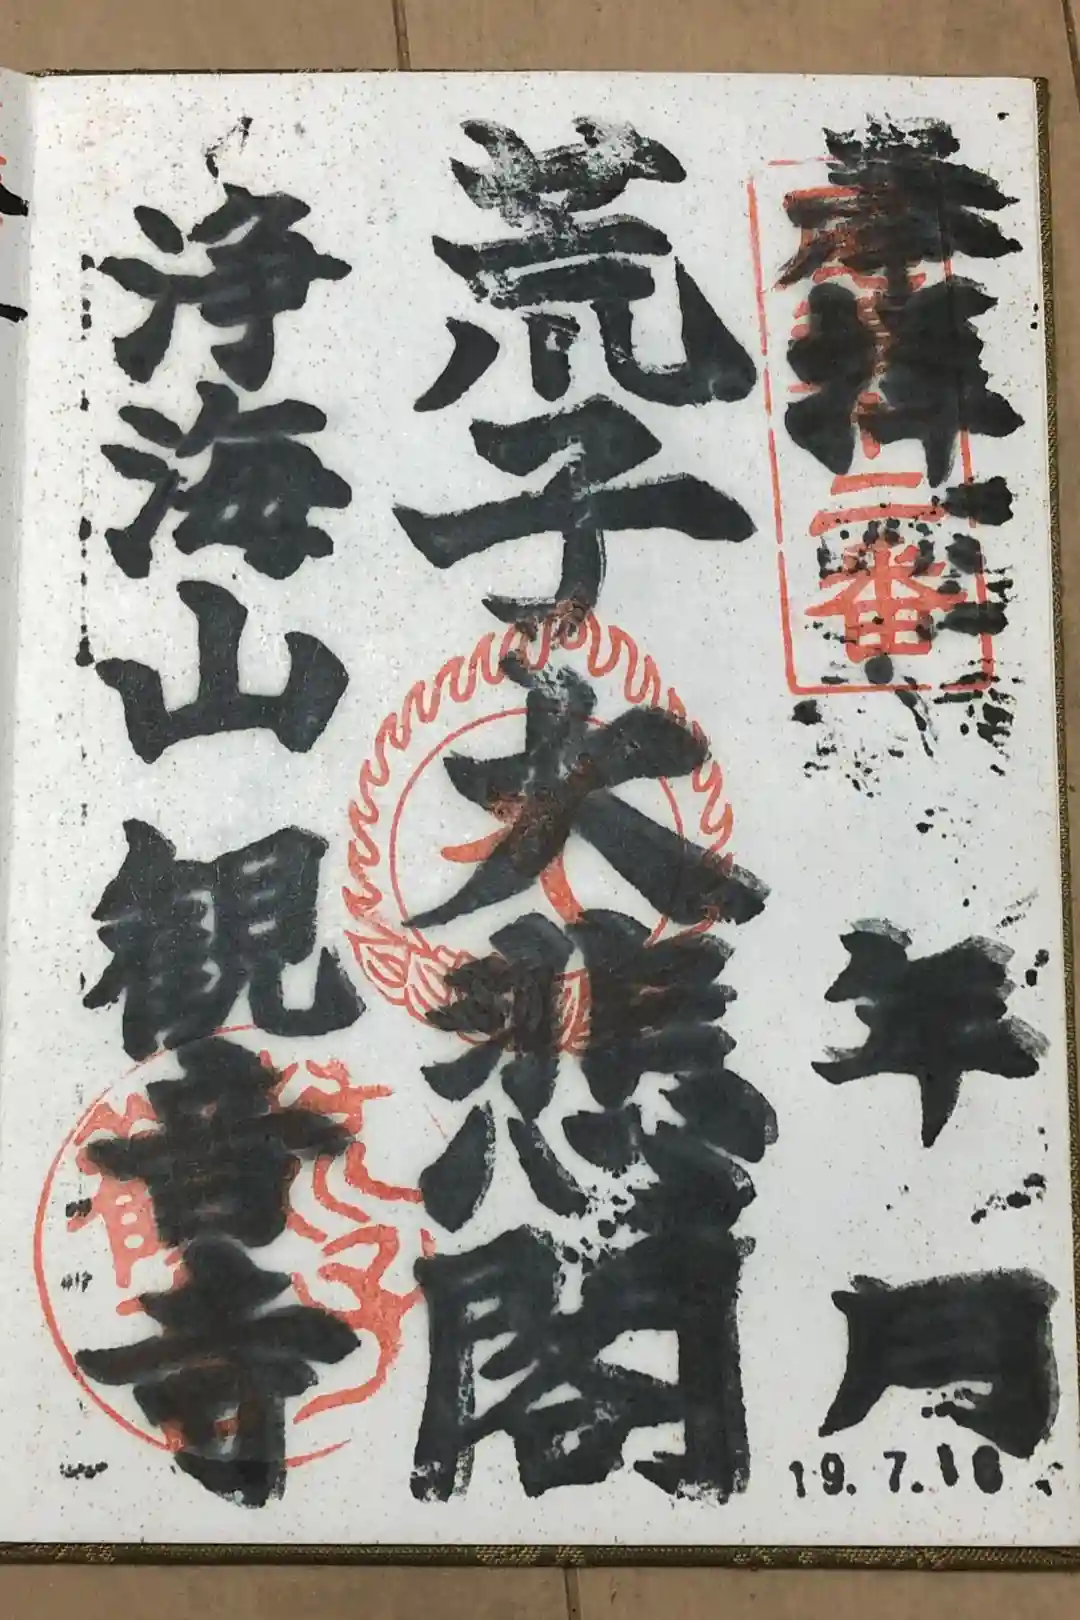 奉拝
二番
年 月
19.7.16
荒子大悲閣
浄海山観音寺